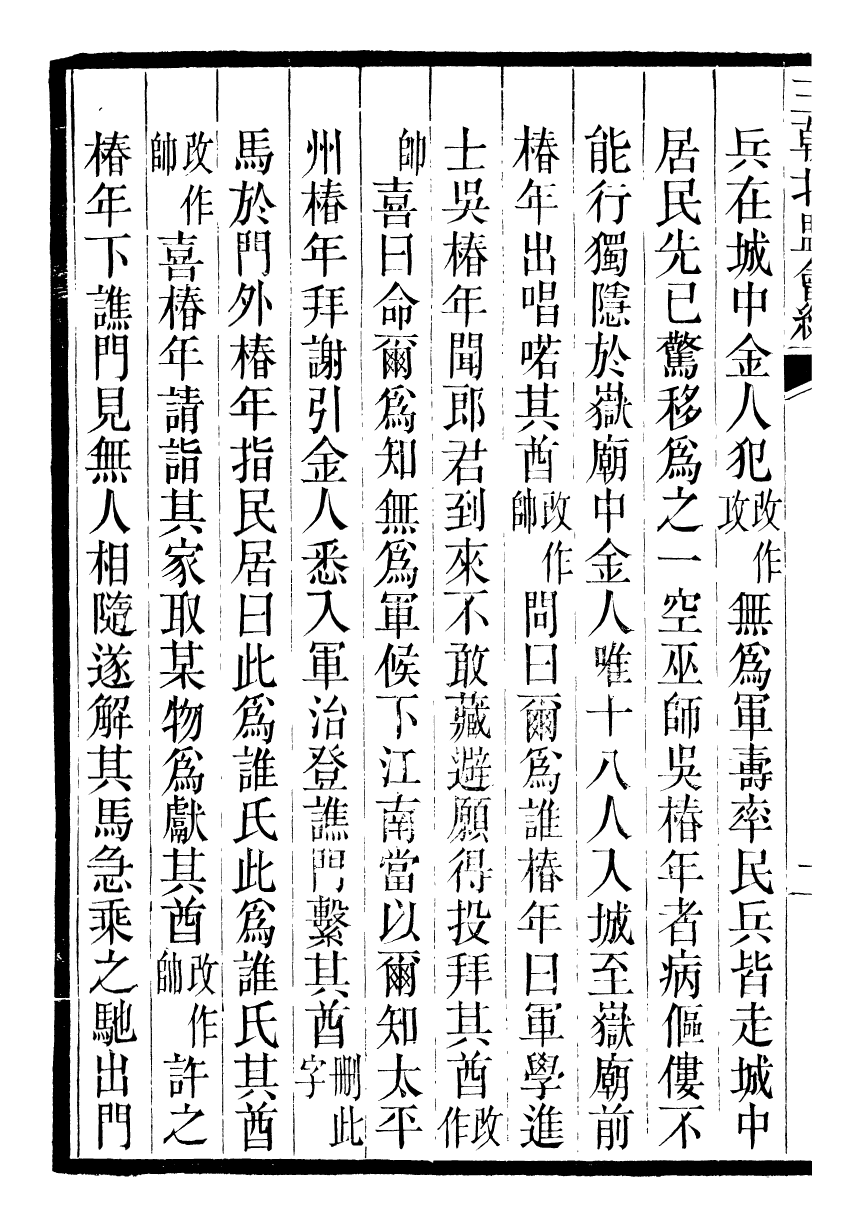 三朝北盟會編
二
兵在城中金人犯改作攻無爲軍壽率民兵皆走城中
居民先已驚移爲之一空巫師吳椿年者病傴僂不
能行獨隱於嶽廟中金人唯十八人入城至嶽廟前
椿年出唱喏其酋改作帥問曰爾爲誰椿年曰軍學進
士吳椿年聞郎君到來不敢藏避願得投拜其酋改作
帥喜曰命爾爲知無爲軍候下江南當以爾知太平
州椿年拜謝引金人悉入軍治登譙門繫其酋刪此字
馬於門外椿年指民居曰此爲誰氏此爲誰氏其酋
改作帥喜椿年請詣其家取某物爲獻其酋改作帥許之
椿年下譙門見無人相隨遂解其馬急乘之馳出門